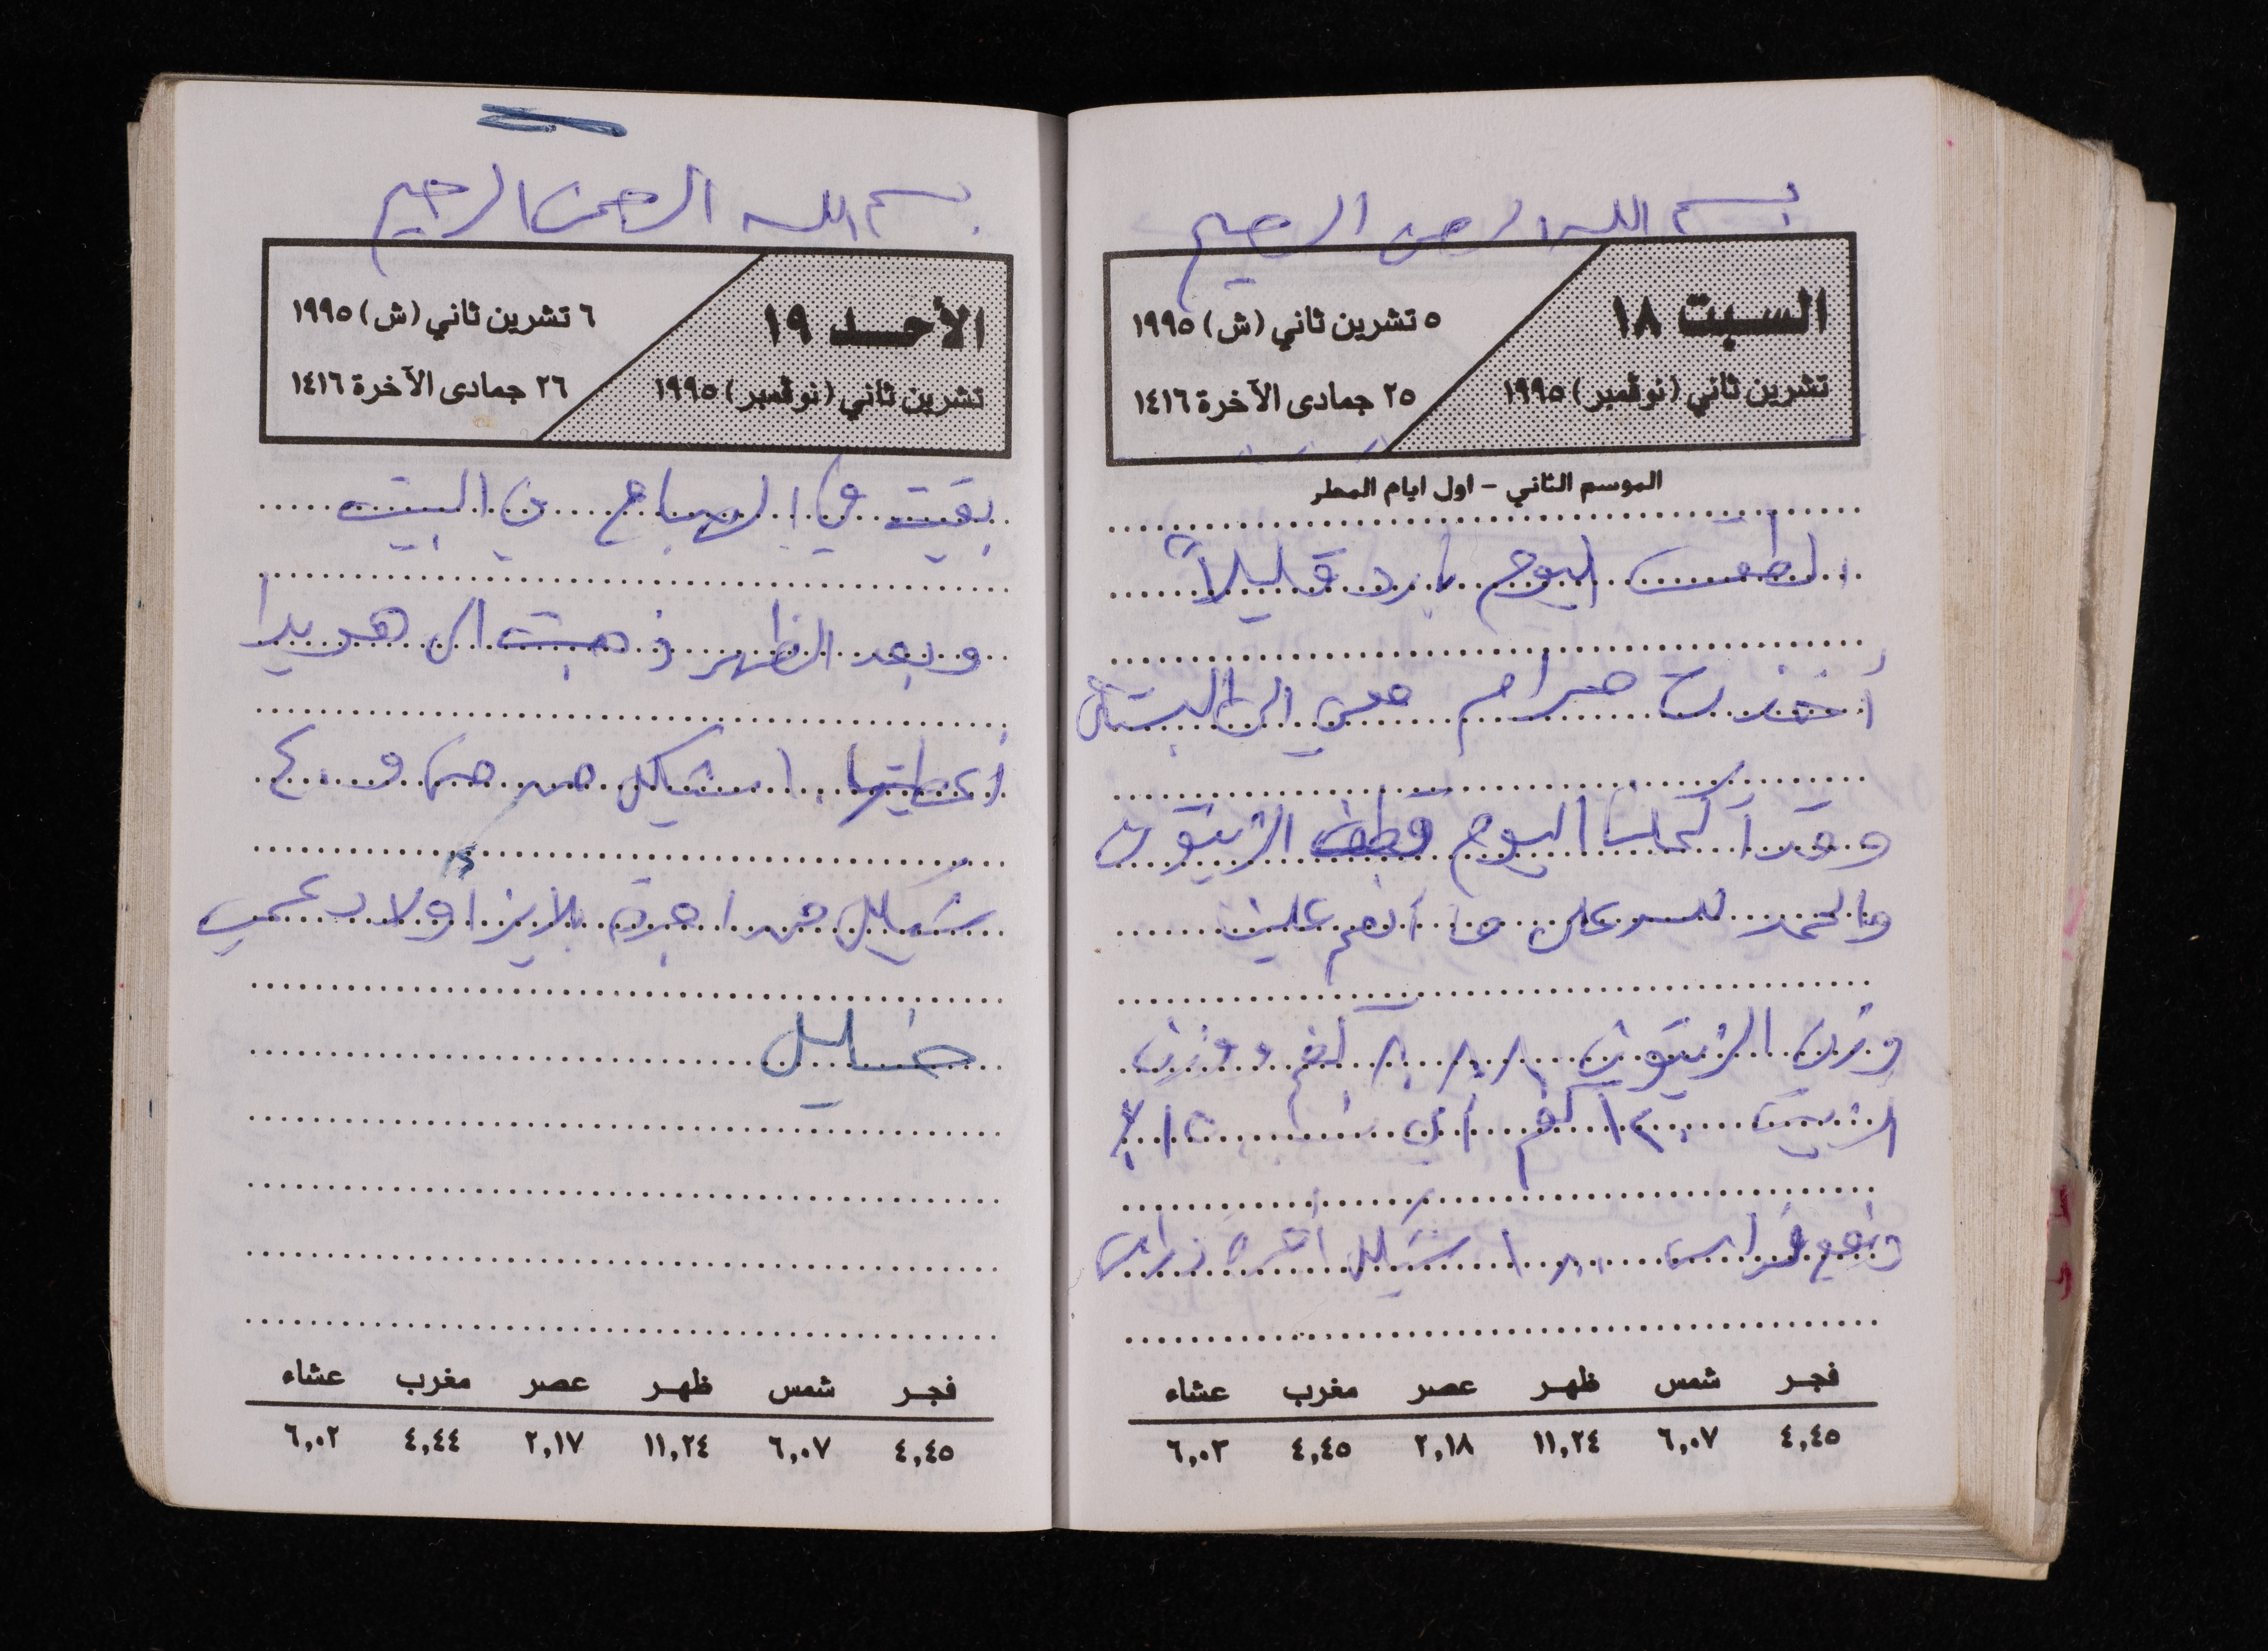 بسم الله الرحمن الرحيم
السبت ١٨
تشرين ثاني (نوفمبر) ١٩٩٥
٥ تشرين ثاني (ش) ١٩٩٥
٢٥ جمادى الآخرة ١٤١٦
الموسم الثاني - اول ايام المطر
الطقس اليوم بارد قليلاً
أخذت مرام معي الى البستان
وقد أكملنا اليوم قطف الزيتون
والحمد لله على ما أنعم علينا
وزن الزيتون كغم ووزن
الزيت ١٢٠ كغم أي
ودفع فراس ١٠٠ شيكل أجرة
فجر شمس ظهر عصر مغرب عشاء
٤,٤٥ ٦,٠٧ ١١,٢٤ ٢,١٨ ٤,٤٥ ٦,٠٣
بسم الله الرحمن الرحيم
الأحد ١٩
تشرين ثاني (نوفمبر) ١٩٩٥
٦ تشرين ثاني (ش) ١٩٩٥
٢٦ جمادى الآخرة ١٤١٦
بقيت في الصباح في البيت
وبعد الظهر ذهبت الى هويدا
أعطيتها شيكل من و ٤٠
شيكل من اجرة أولاد عمي
خليل
فجر شمس ظهر عصر مغرب عشاء
٤,٤٥ ٦,٠٧ ١١,٢٤ ٢,١٧ ٤,٤٤ ٦,٠٢